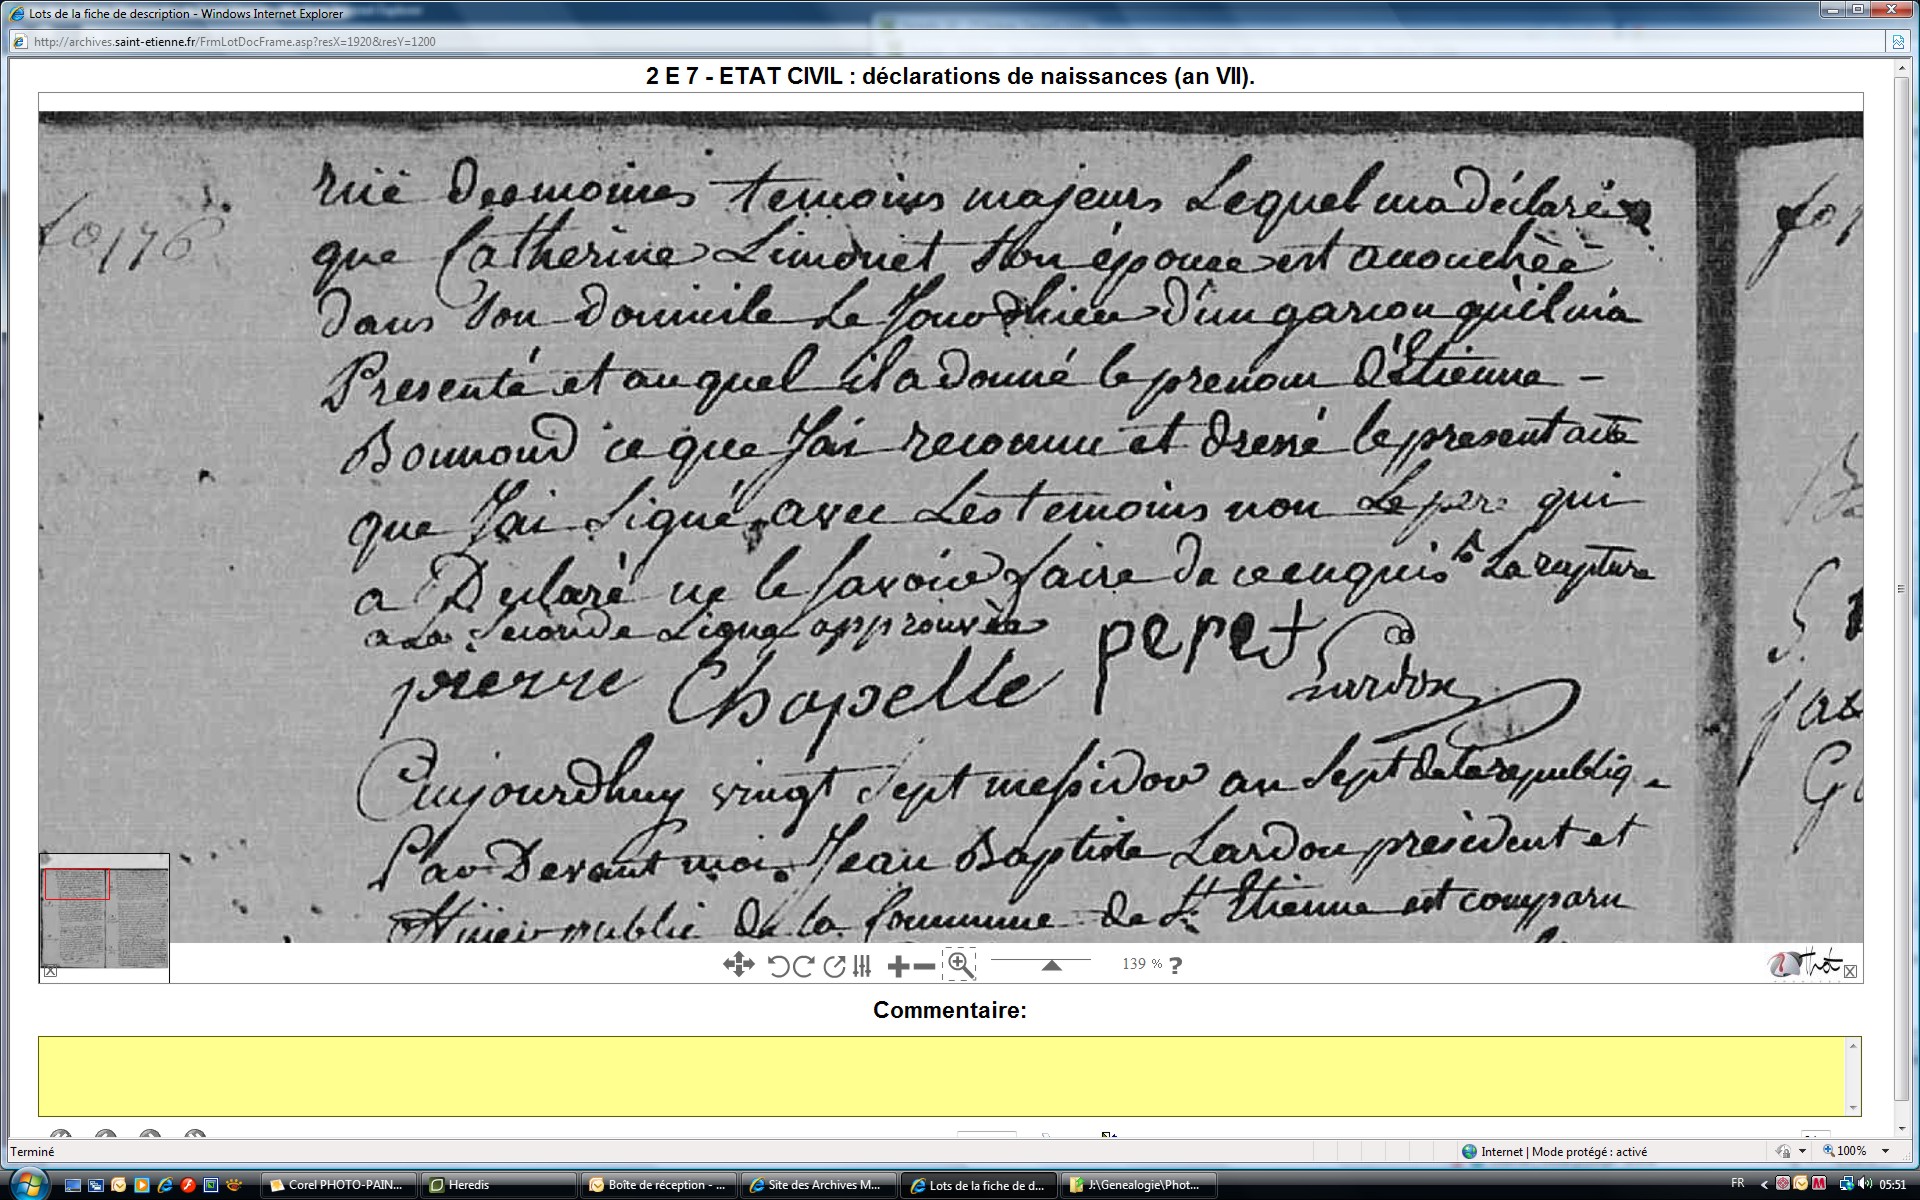 Lots de la fiche de description - Windows Internet Explorer
http://archives.saint-etienne.fr/FrmLotDocFrame.asp?resX=1920&resY=1200
2 E 7 - ETAT CIVIL : déclarations de naissances (an VII).
fo 176
ruë des moines temoins majeurs Lequel ma déclaré
que Catherine Limonet son épouse est accouchéé
dans son domicile le Jour d'hier d'un garcon qu'il m'a
Presenté et auquel il a donné le prenom d'Etienne -
Bonnond ce que J'ai reconnu et dressé le present acte
que J'ai Signé avec Les temoins non Le pere qui
a Declaré ne le savoir faire de ce enquis La rupture
a La Seconde Ligne approuvée
pierre Chapelle peret Lardon
Aujourdhuy vingt Sept messidor an Sept de la republiq
Par Devant moi Jean Baptiste Lardon président et
officier public de la Commune de St Etienne est comparu
139 % ?
Commentaire:
Terminé
Internet | Mode protégé : activé
100%
Corel PHOTO-PAIN...
Heredis
Boîte de réception - ...
Site des Archives M...
Lots de la fiche de d...
J:\Genealogie\Phot...
FR
05:51